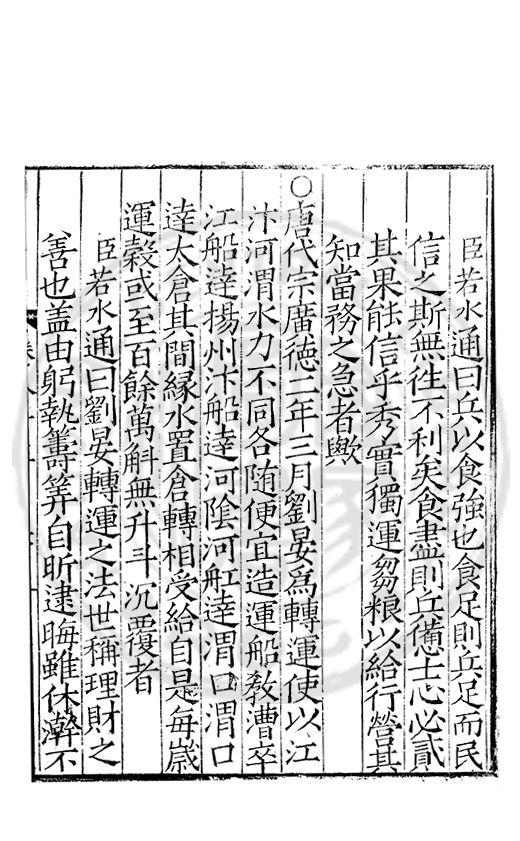 臣若水通曰兵以食強也食足則兵足而民
信之斯無徃不利矣食盡則兵憊士心必貳
其果能信乎秀實獨運芻粮以給行營其
知當務之急者歟
○唐代宗廣德二年三月劉晏爲轉運使以江
汴河渭水力不同各隨便宜造運船教漕卒
江船達揚州汴船達河陰河舡達渭口渭口
達太倉其間緣水置倉轉相受給自是每歲
運穀或至百餘萬斛無升斗沉覆者
臣若水通曰劉晏轉運之法世稱理財之
善也盖由躬執籌筭自昕逮晦雖休澣不